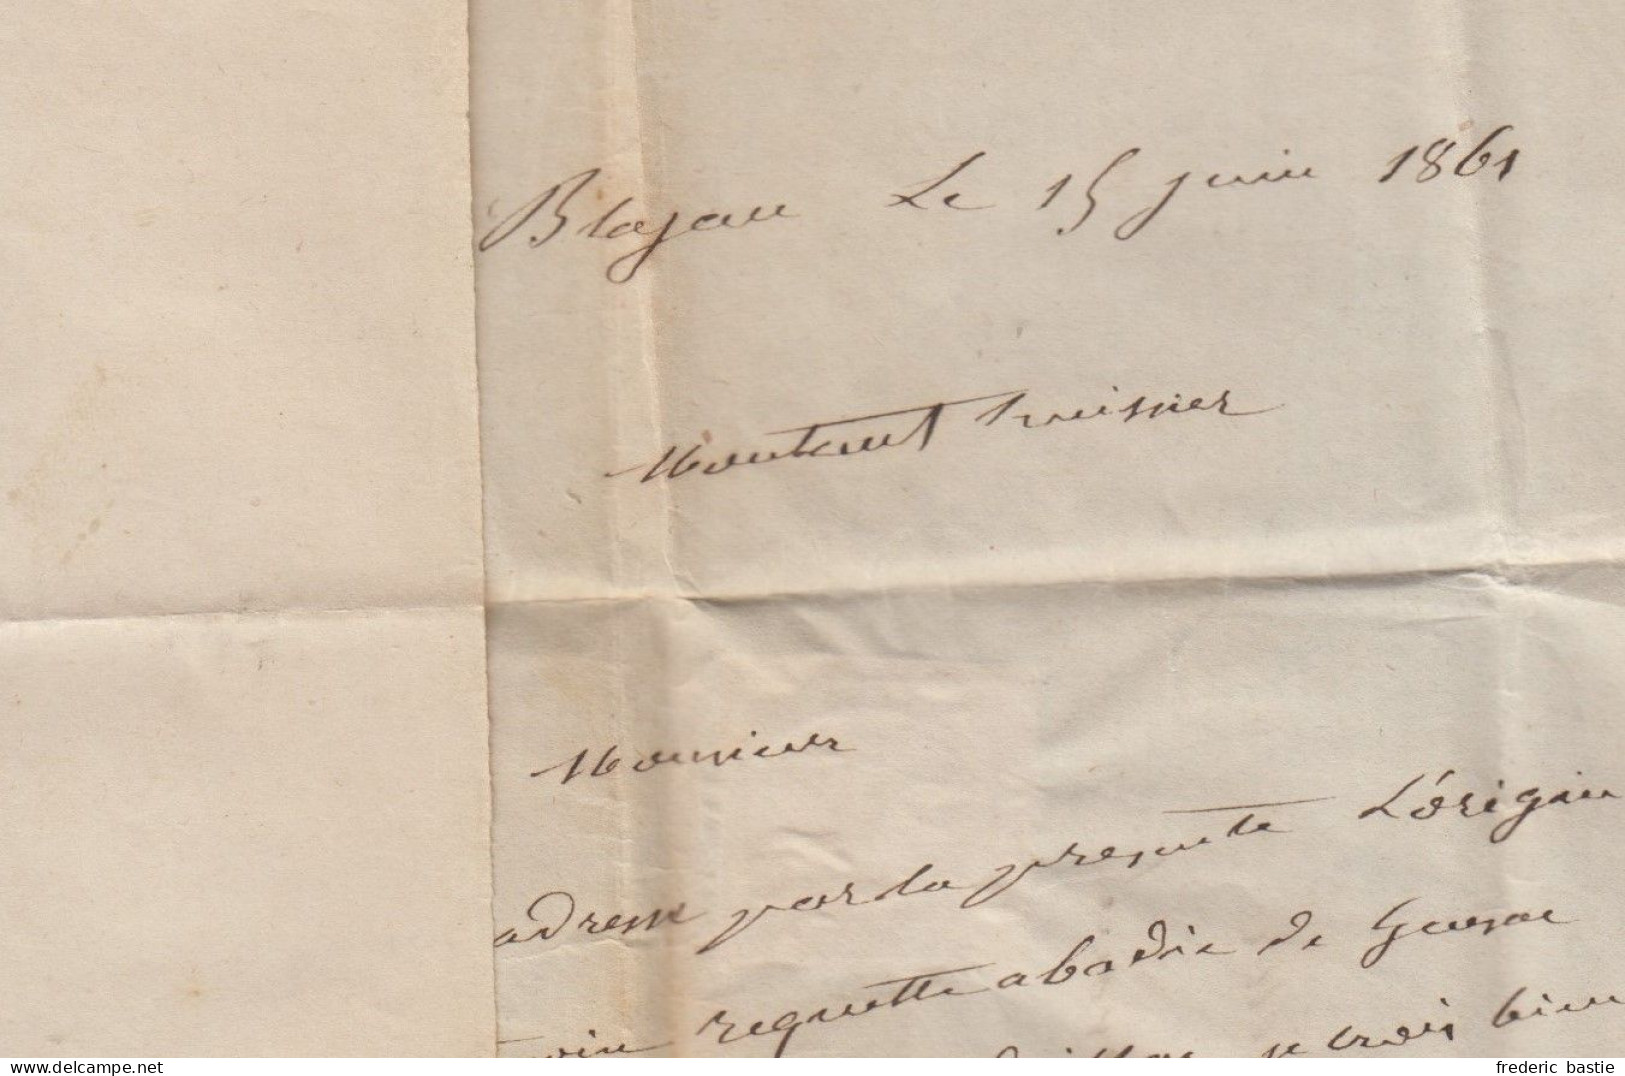 Blajan Le 15 juin 1861
Montaut huissier
Monsieur
adresse par la presente L'origin
requette abadie de
je crois bien
delcampe.net
frederic bastie